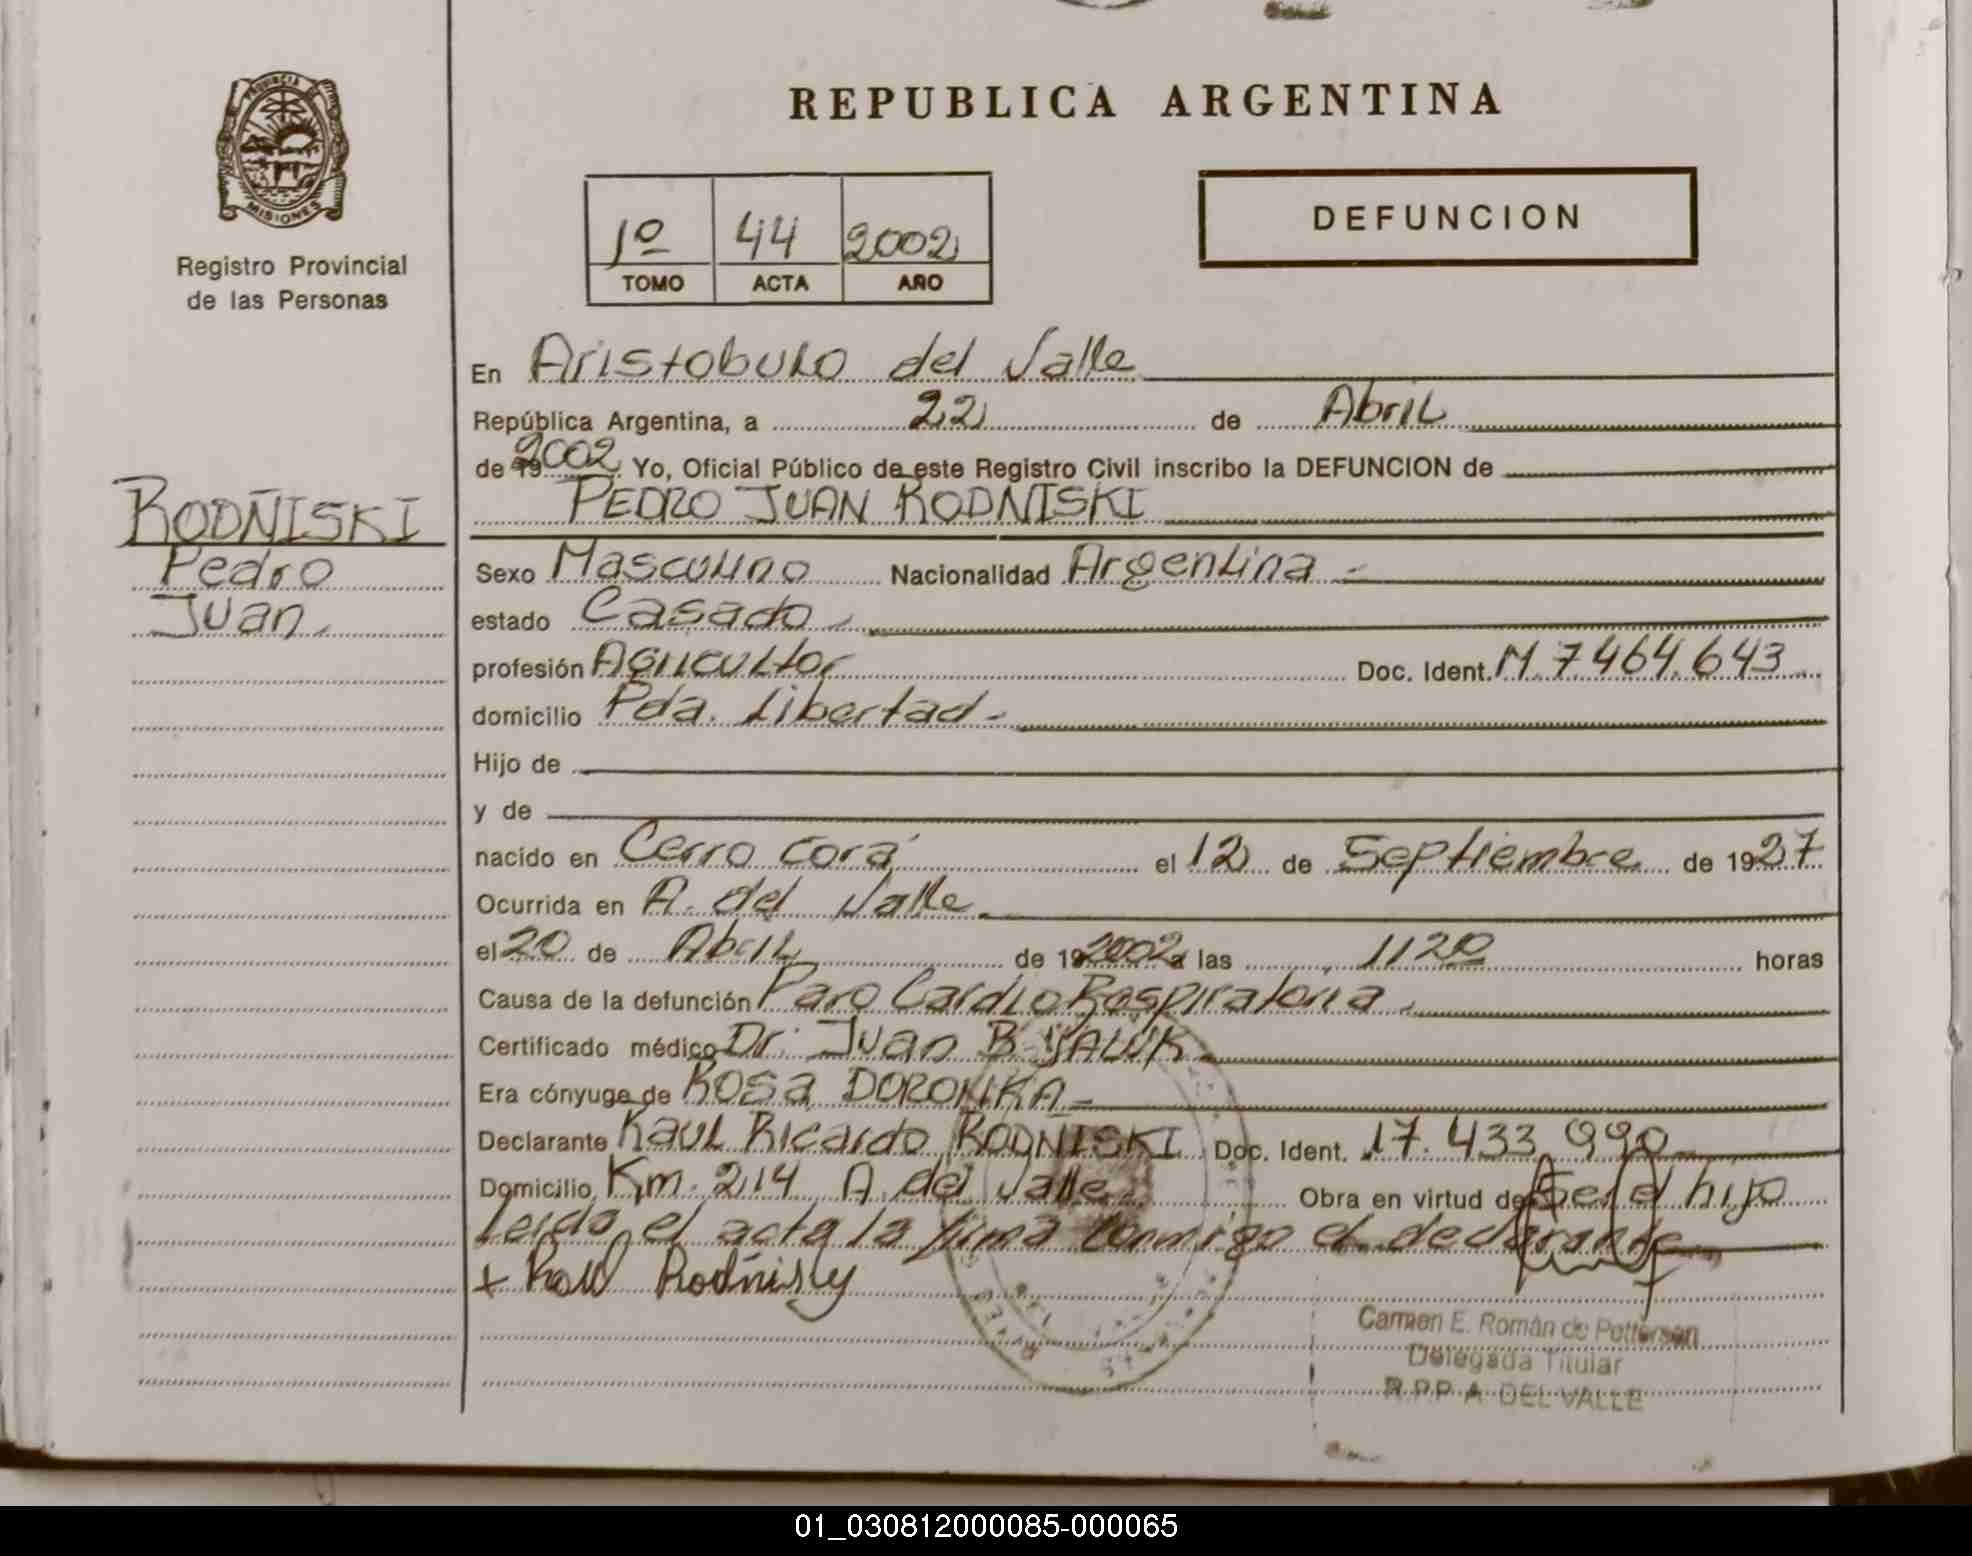 REPUBLICA ARGENTINA
PROVINCIA DE
MISIONES
Registro Provincial
de las Personas
1º 44 2002
TOMO ACTA AÑO
DEFUNCION
En Aristobulo del Valle
República Argentina, a 22 de Abril
de 19 2002 Yo, Oficial Público de este Registro Civil inscribo la DEFUNCION de
PEDRO JUAN RODÑISKI
RODÑISKI
Pedro
Juan.
Sexo Masculino Nacionalidad Argentina -
estado Casado -
profesión Agricultor Doc. Ident. M. 7.464.643
domicilio Pda. Libertad -
Hijo de
y de
nacido en Cerro Corá el 12 de Septiembre de 1927
Ocurrida en A. del Valle
el 20 de Abril de 19 2002 a las 1120 horas
Causa de la defunción Paro Cardio Respiratoria.
Certificado médico Dr. Juan B.
Era cónyuge de Rosa DORONKA -
Declarante RAUL Ricardo RODÑISKI Doc. Ident. 17.433.990
Domicilio Km. 214 A. del Valle Obra en virtud de Ser el hijo
Leido el acta la firma conmigo el declarante
+ Raul Rodñisky
Carmen E. Román de
Delegada Titular
R.P.P A. DEL VALLE
01_030812000085-000065